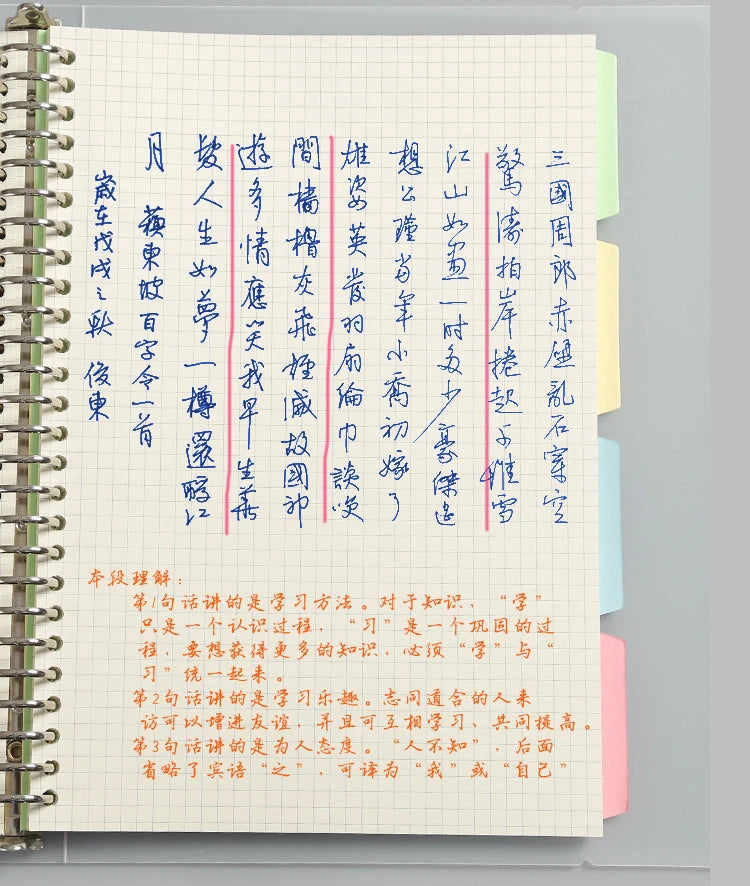 三國周郎赤壁亂石穿空
驚濤拍岸捲起千堆雪
江山如畫一時多少豪傑遙
想公瑾當年小喬初嫁了
雄姿英發羽扇綸巾談笑
間檣櫓灰飛煙滅故國神
遊多情應笑我早生華
髮人生如夢一樽還酹江
月 蘇東坡百字令一首
歲在戊戌之秋 俊東
本段理解：
第1句话讲的是学习方法。对于知识，“学”
只是一个认识过程，“习”是一个巩固的过
程，要想获得更多的知识，必须“学”与“
习”统一起来。
第2句话讲的是学习乐趣。志同道合的人来
访可以增进友谊，并且可互相学习、共同提高。
第3句话讲的是为人态度。“人不知”，后面
省略了宾语“之”，可译为“我”或“自己”